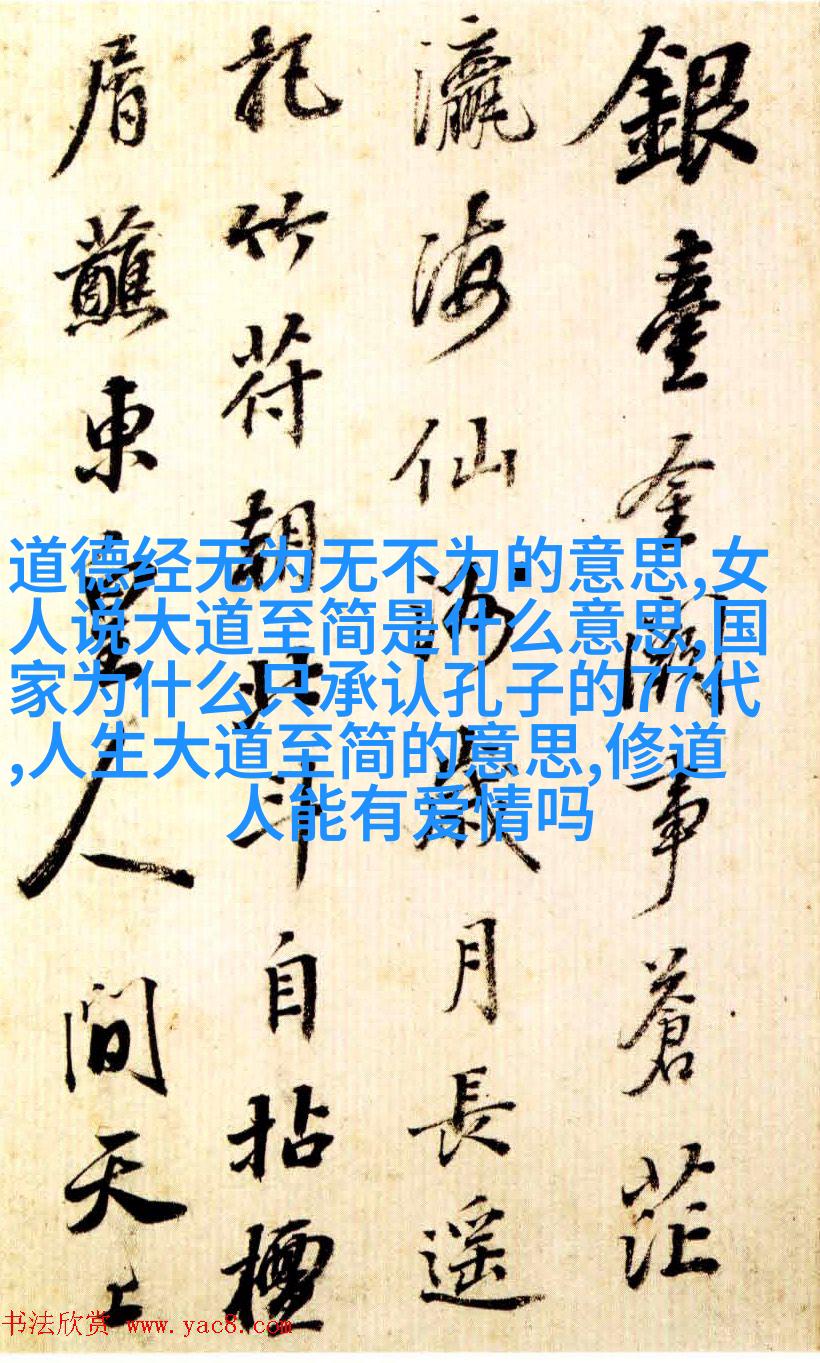 銀臺金闕事蒼茫
瀛海仙洲歲月長遥
竹符朝北斗自拈檀
屑蘸東皇人間天上
道德经无为无不为的意思,女
人说大道至简是什么意思,国
家为什么只承认孔子的77代
,人生大道至简的意思,修道
人能有爱情吗
书法欣赏 www.yac8.com